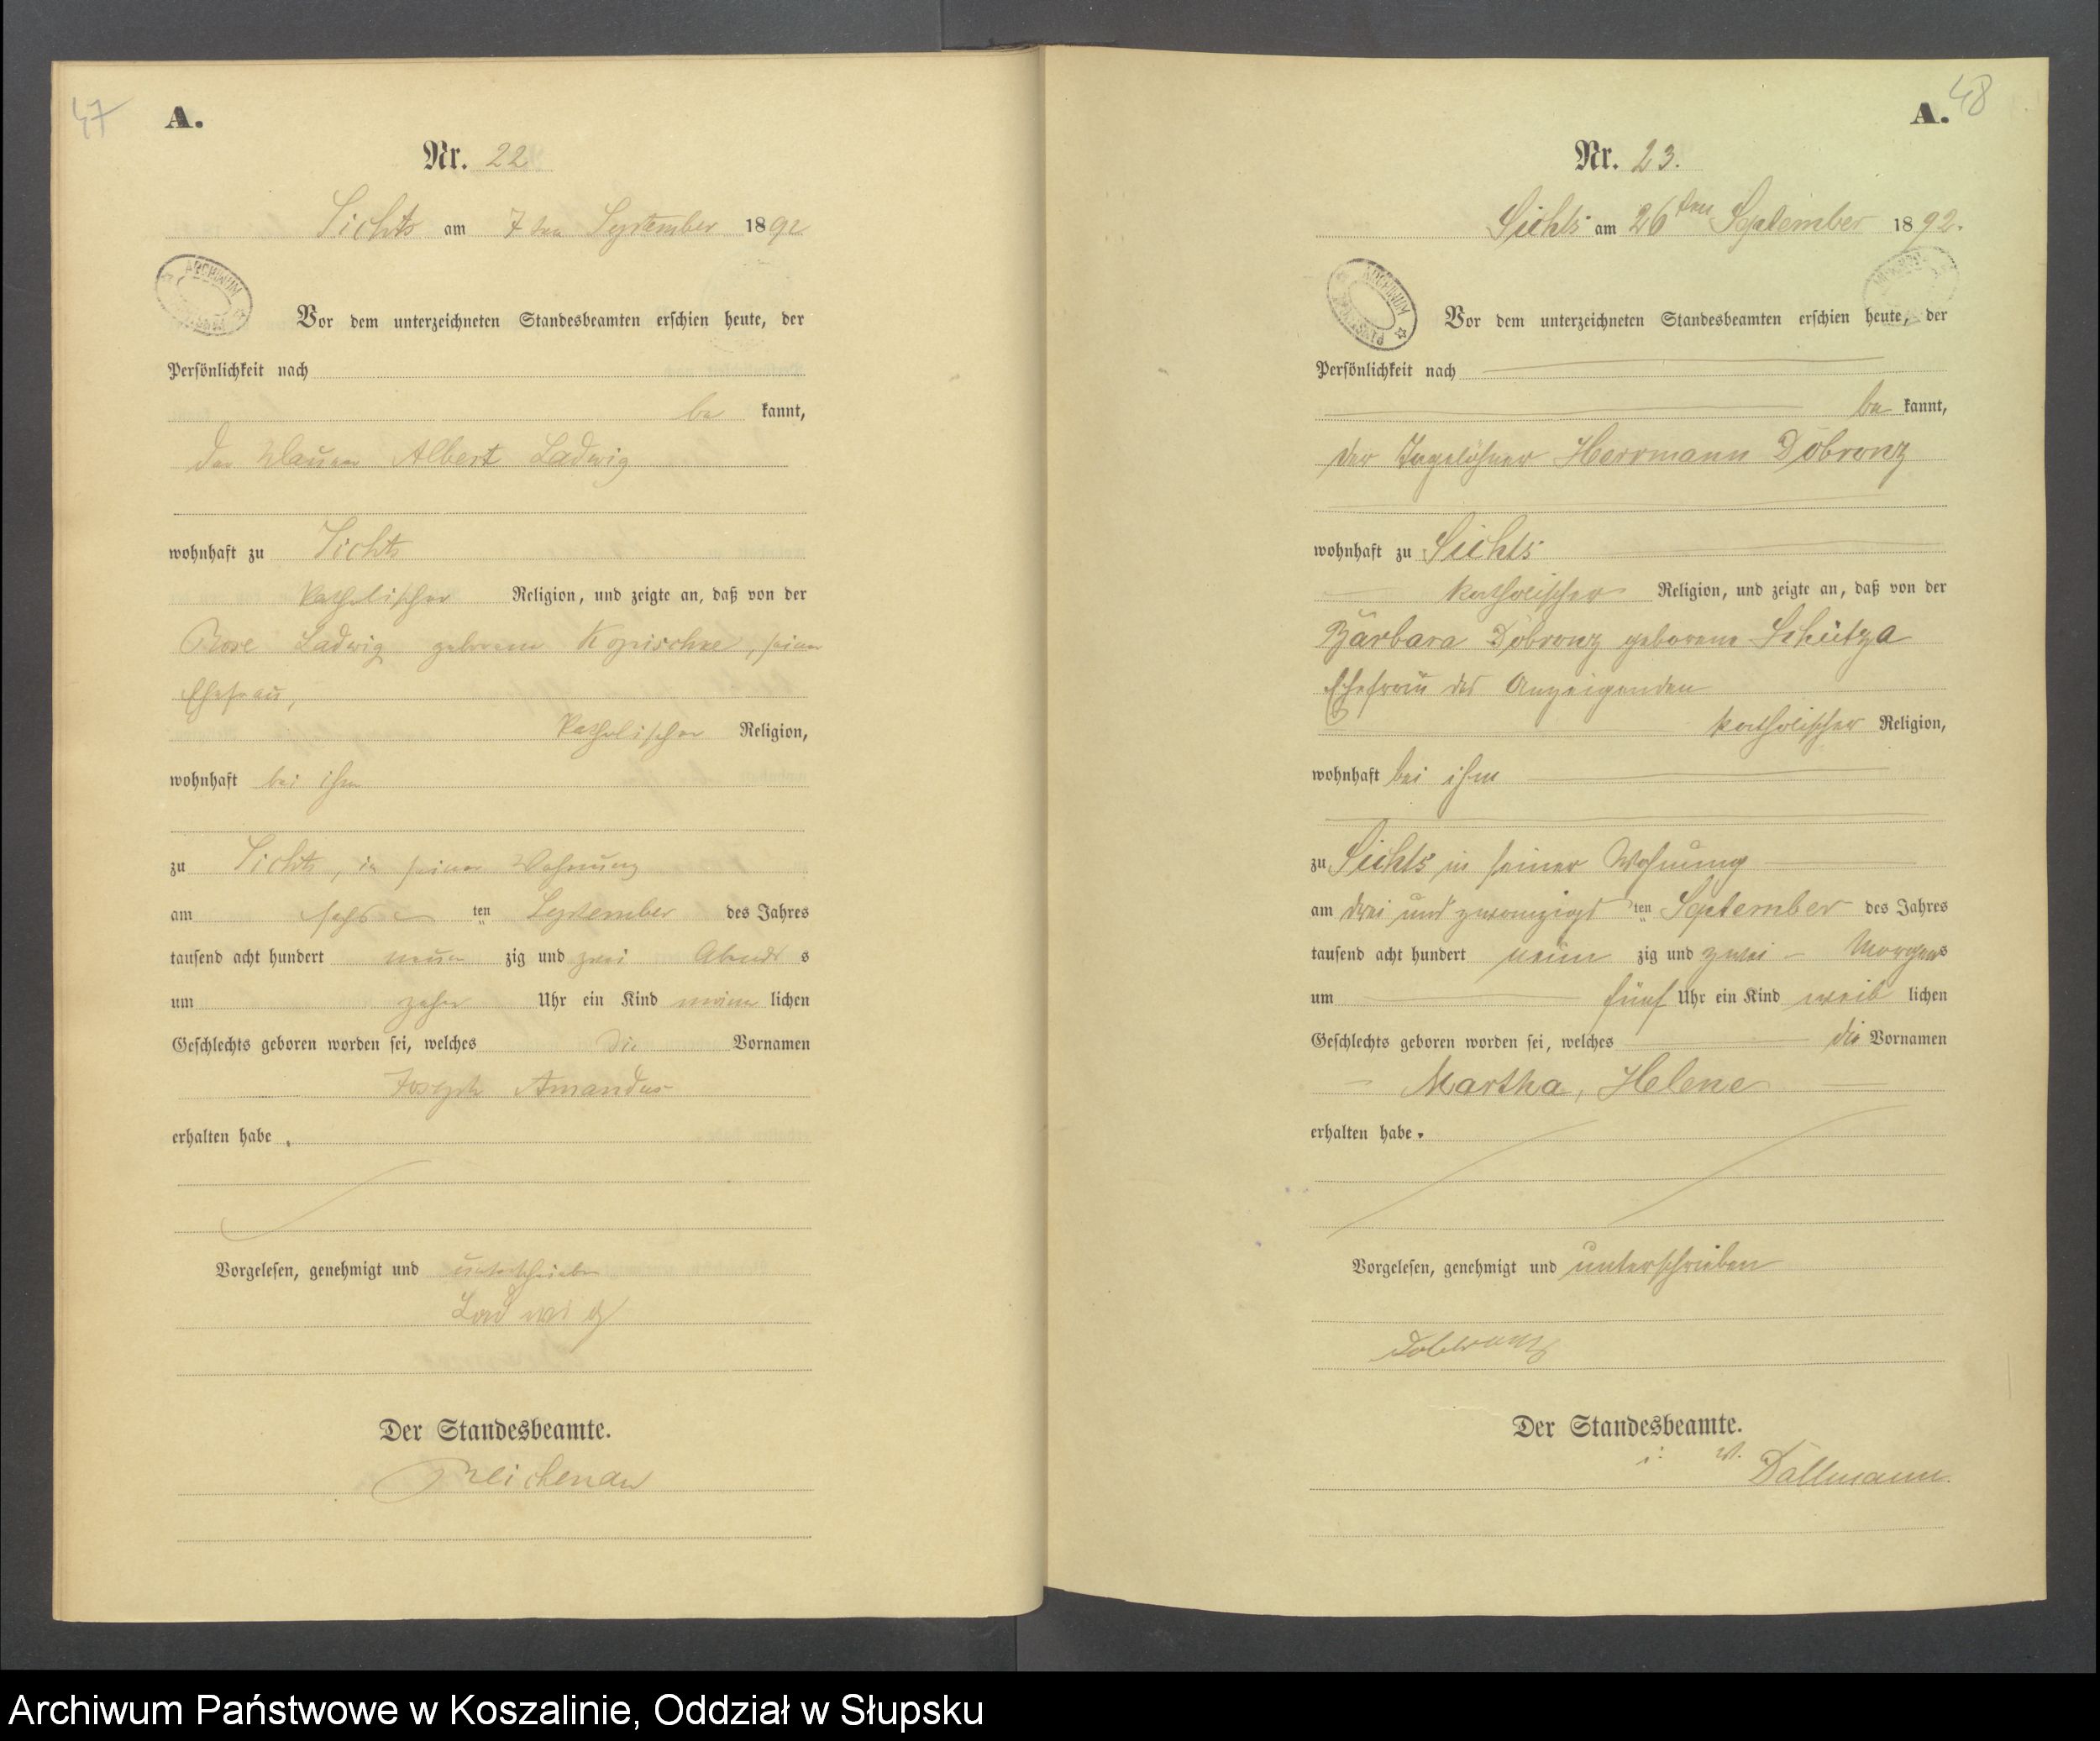 47
A.
Nr. 22
Sichts am 7ten September 1892
ARCHIWUM
Vor dem unterzeichneten Standesbeamten erschien heute, der
Persönlichkeit nach
be kannt,
der Maurer Albert Ladwig
wohnhaft zu Sichts
katholischer Religion, und zeigte an, daß von der
Rose Ladwig geborene Kopischke, seiner
Ehefrau,
katholischer Religion,
wohnhaft bei ihm
zu Sichts, in seiner Wohnung
am sechs ten September des Jahres
tausend acht hundert neun zig und zwei Abends
um zehn Uhr ein Kind männ lichen
Geschlechts geboren worden sei, welches die Vornamen
Joseph Amandus
erhalten habe.
Vorgelesen, genehmigt und unterschrieben
Ladwig
Der Standesbeamte.
Reichenau
48
A.
Nr. 23.
Sichts am 26ten September 1892.
ARCHIWUM
Vor dem unterzeichneten Standesbeamten erschien heute, der
Persönlichkeit nach
be kannt,
der Tagelöhner Herrmann Dobronz
wohnhaft zu Sichts
katholischer Religion, und zeigte an, daß von der
Barbara Dobronz geborene Schütza
Ehefrau des Anzeigenden
katholischer Religion,
wohnhaft bei ihm
zu Sichts in seiner Wohnung
am drei und zwanzigst ten September des Jahres
tausend acht hundert neun zig und zwei Morgens
um fünf Uhr ein Kind weib lichen
Geschlechts geboren worden sei, welches die Vornamen
Martha, Helene
erhalten habe.
Vorgelesen, genehmigt und unterschrieben
Dobronz
Der Standesbeamte.
i. V. Dallmann.
Archiwum Państwowe w Koszalinie, Oddział w Słupsku